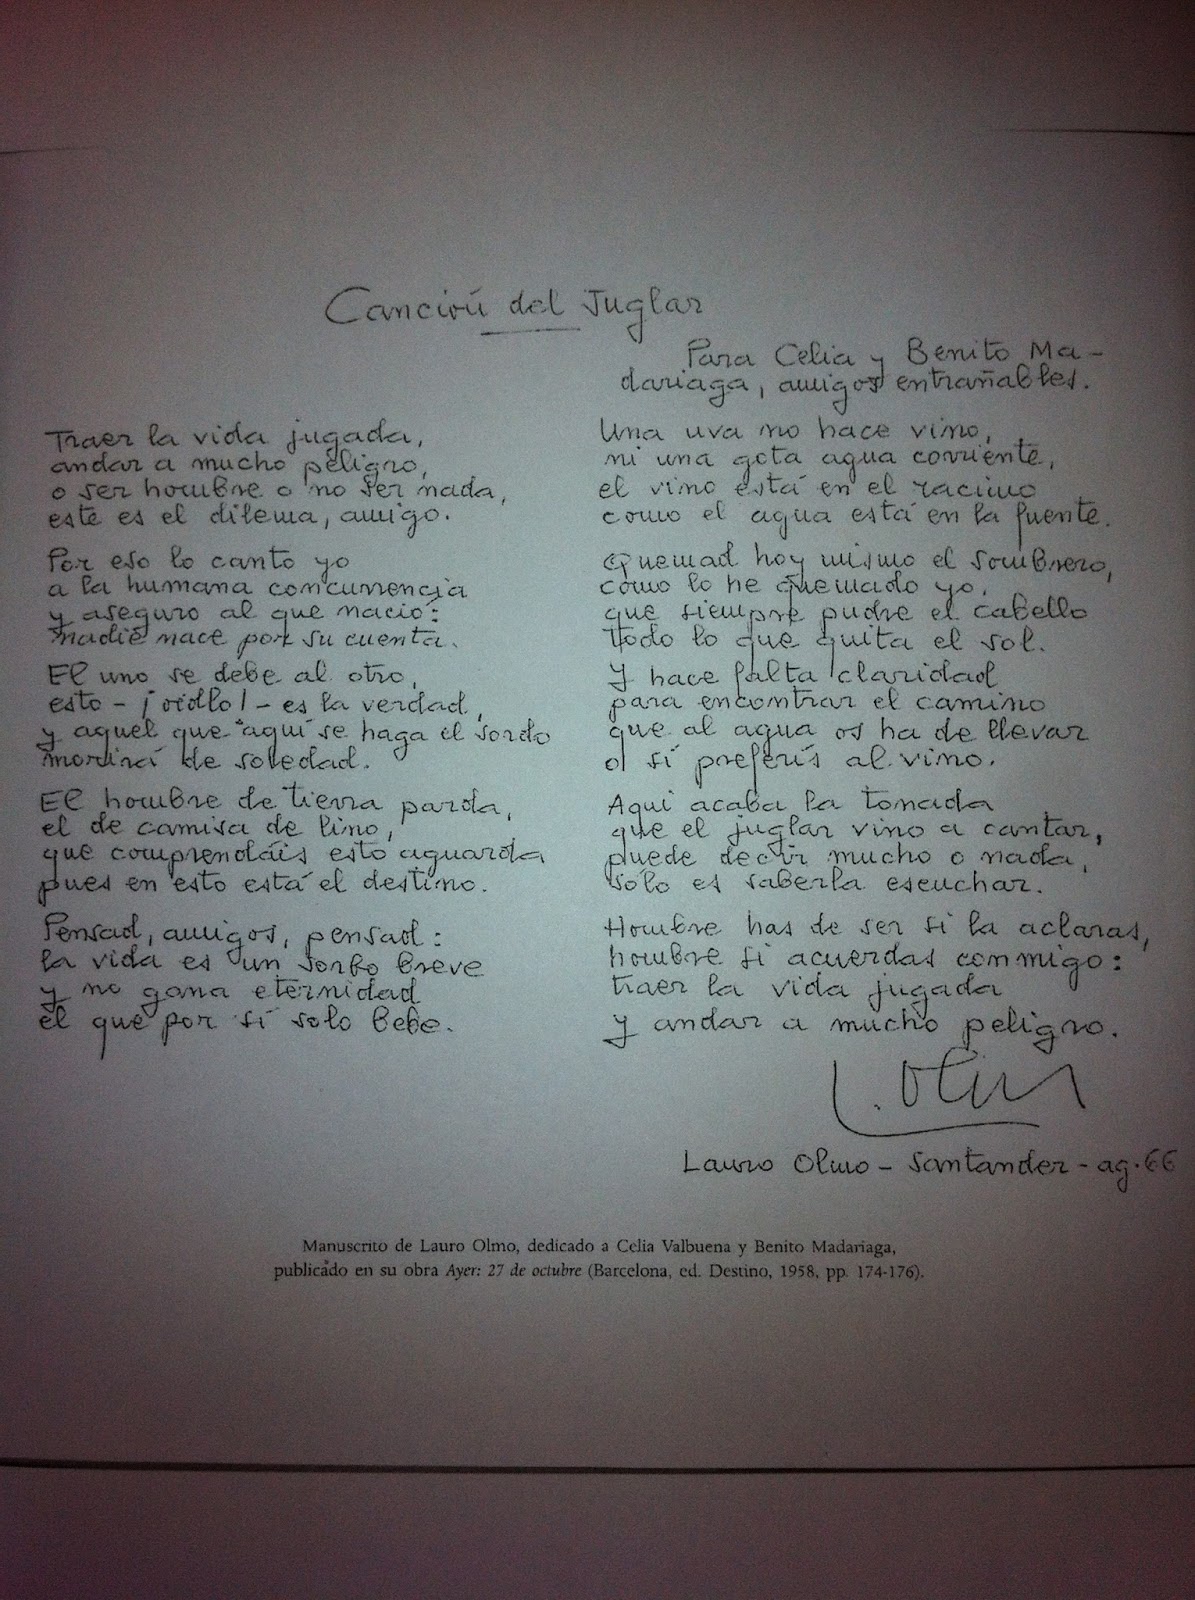 Canción del Juglar
Para Celia y Benito Ma-
dariaga, amigos entrañables.
Traer la vida jugada,
andar a mucho peligro,
o ser hombre o no ser nada,
este es el dilema, amigo.
Por eso lo canto yo
a la humana concurrencia
y aseguro al que nació:
nadie nace por su cuenta.
El uno se debe al otro,
esto - ¡oídlo! - es la verdad,
y aquel que aquí se haga el sordo
morirá de soledad.
El hombre de tierra parda,
el de camisa de lino,
que comprendáis esto aguarda
pues en esto está el destino.
Pensad, amigos, pensad:
la vida es un sorbo breve
y no gana eternidad
el que por sí solo bebe.
Una uva no hace vino,
ni una gota agua corriente,
el vino está en el racimo
como el agua está en la fuente.
Quemad hoy mismo el sombrero,
como lo he quemado yo,
que siempre pudre el cabello
todo lo que quita el sol.
Y hace falta claridad
para encontrar el camino
que al agua os ha de llevar
o si preferís al vino.
Aquí acaba la tonada
que el juglar vino a cantar,
puede decir mucho o nada,
sólo es saberla escuchar.
Hombre has de ser si la aclaras,
hombre si acuerdas conmigo:
traer la vida jugada
y andar a mucho peligro.
L. Olmo
Lauro Olmo - Santander - ag. 66
Manuscrito de Lauro Olmo, dedicado a Celia Valbuena y Benito Madariaga,
publicado en su obra Ayer: 27 de octubre (Barcelona, ed. Destino, 1958, pp. 174-176).